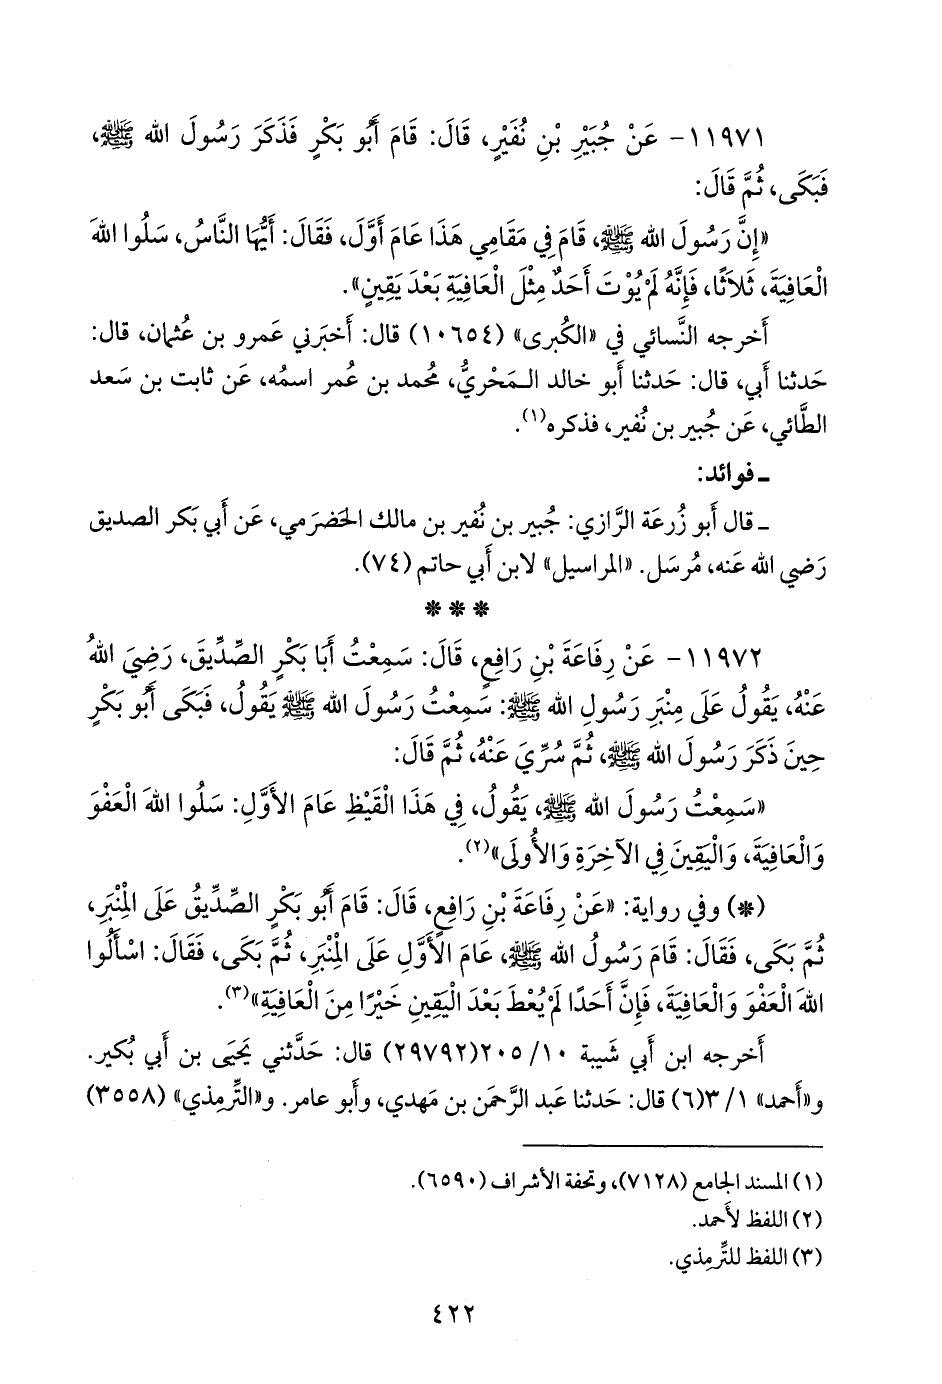 ١١٩٧١- عَنْ جُبَيْرِ بْنِ نُفَيْرٍ، قَالَ: قَامَ أَبُو بَكْرٍ فَذَكَرَ رَسُولَ الله ﷺ،
فَبَكَى، ثُمَّ قَالَ:
«إِنَّ رَسُولَ الله ﷺ، قَامَ فِي مَقَامِي هَذَا عَامَ أَوَّلَ، فَقَالَ: أَيُّهَا النَّاسُ، سَلُوا اللهَ
الْعَافِيَةَ، ثَلاَثًا، فَإِنَّهُ لَمْ يُوْتَ أَحَدٌ مِثْلَ الْعَافِيَةِ بَعْدَ يَقِينٍ».
أَخرجه النَّسائي في «الكُبرى» (١٠٦٥٤) قال: أَخبَرني عَمرو بن عُثمان، قال:
حَدثنا أَبي، قال: حَدثنا أَبو خالد الـمَحْريُّ، مُحمد بن عُمر اسمُه، عَن ثابت بن سَعد
الطَّائي، عَن جُبير بن نُفير، فذكره(١).
ـ فوائد:
ـ قال أَبو زُرعَة الرَّازي: جُبير بن نُفير بن مالك الحَضرَمي، عَن أَبي بَكر الصديق
رَضي الله عَنه، مُرسَل. «المراسيل» لابن أَبي حاتم (٧٤).
***
١١٩٧٢- عَنْ رِفَاعَةَ بْنِ رَافِعٍ، قَالَ: سَمِعْتُ أَبَا بَكْرٍ الصِّدِّيقَ، رَضِيَ اللهُ
عَنْهُ، يَقُولُ عَلَى مِنْبَرِ رَسُولِ الله ﷺ: سَمِعْتُ رَسُولَ الله ﷺ يَقُولُ، فَبَكَى أَبُو بَكْرٍ
حِينَ ذَكَرَ رَسُولَ الله ﷺ، ثُمَّ سُرِّيَ عَنْهُ، ثُمَّ قَالَ:
«سَمِعْتُ رَسُولَ الله ﷺ، يَقُولُ، فِي هَذَا الْقَيْظِ عَامَ الأَوَّلِ: سَلُوا اللهَ الْعَفْوَ
وَالْعَافِيَةَ، وَالْيَقِينَ فِي الآخِرَةِ وَالأُولَى»(٢).
(*) وفي رواية: «عَنْ رِفَاعَةَ بْنِ رَافِعٍ، قَالَ: قَامَ أَبُو بَكْرٍ الصِّدِّيقُ عَلَى الْمِنْبَرِ،
ثُمَّ بَكَى، فَقَالَ: قَامَ رَسُولُ الله ﷺ، عَامَ الأَوَّلِ عَلَى الْمِنْبَرِ، ثُمَّ بَكَى، فَقَالَ: اسْأَلُوا
اللهَ الْعَفْوَ وَالْعَافِيَةَ، فَإِنَّ أَحَدًا لَمْ يُعْطَ بَعْدَ الْيَقِينِ خَيْرًا مِنَ الْعَافِيَةِ»(٣).
أَخرجه ابن أَبي شَيبة ١٠/ ٢٠٥(٢٩٧٩٢) قال: حَدَّثني يَحيَى بن أَبي بُكير.
و«أَحمد» ١/ ٣(٦) قال: حَدثنا عَبد الرَّحمَن بن مَهدي، وأَبو عامر. و«التِّرمِذي» (٣٥٥٨)
(١) المسند الجامع (٧١٢٨)، وتحفة الأشراف (٦٥٩٠).
(٢) اللفظ لأَحمد.
(٣) اللفظ للتِّرمِذي.
٤٢٢